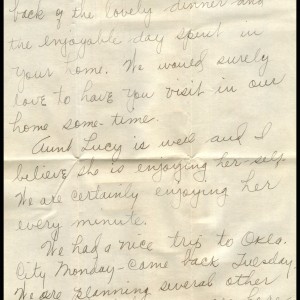 back of the lovely dinner and
the enjoyable day spent in
your home. We would surely
love to have you visit in our
home some-time.
Aunt Lucy is well and I
believe she is enjoying her-self.
We are certainly enjoying her
every minute.
We had a nice trip to Okla.
City Monday - came back Tuesday
We are planning several other